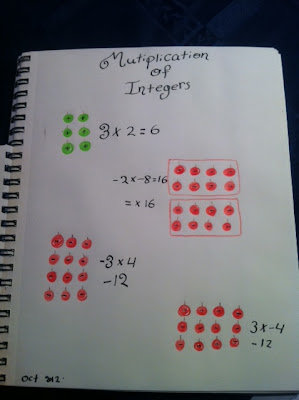 Mutiplication
of
Integers
3 x 2 = 6
-2 x -8 = 16
= x 16
-3 x 4
-12
3 x -4
-12
Oct 2012.